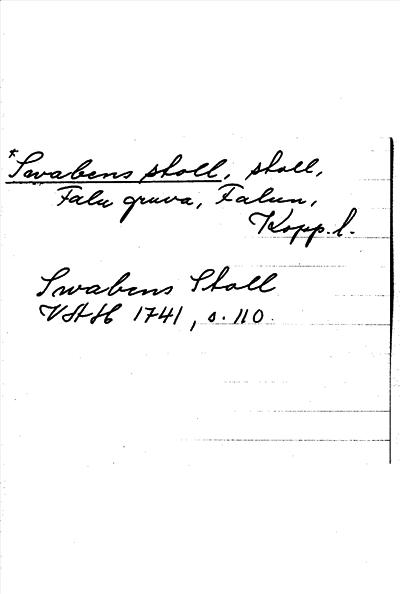 *Swabens stoll, stoll,
Falu gruva, Falun,
Kopp.l.
Swabens Stoll
VAH 1741, s. 110.